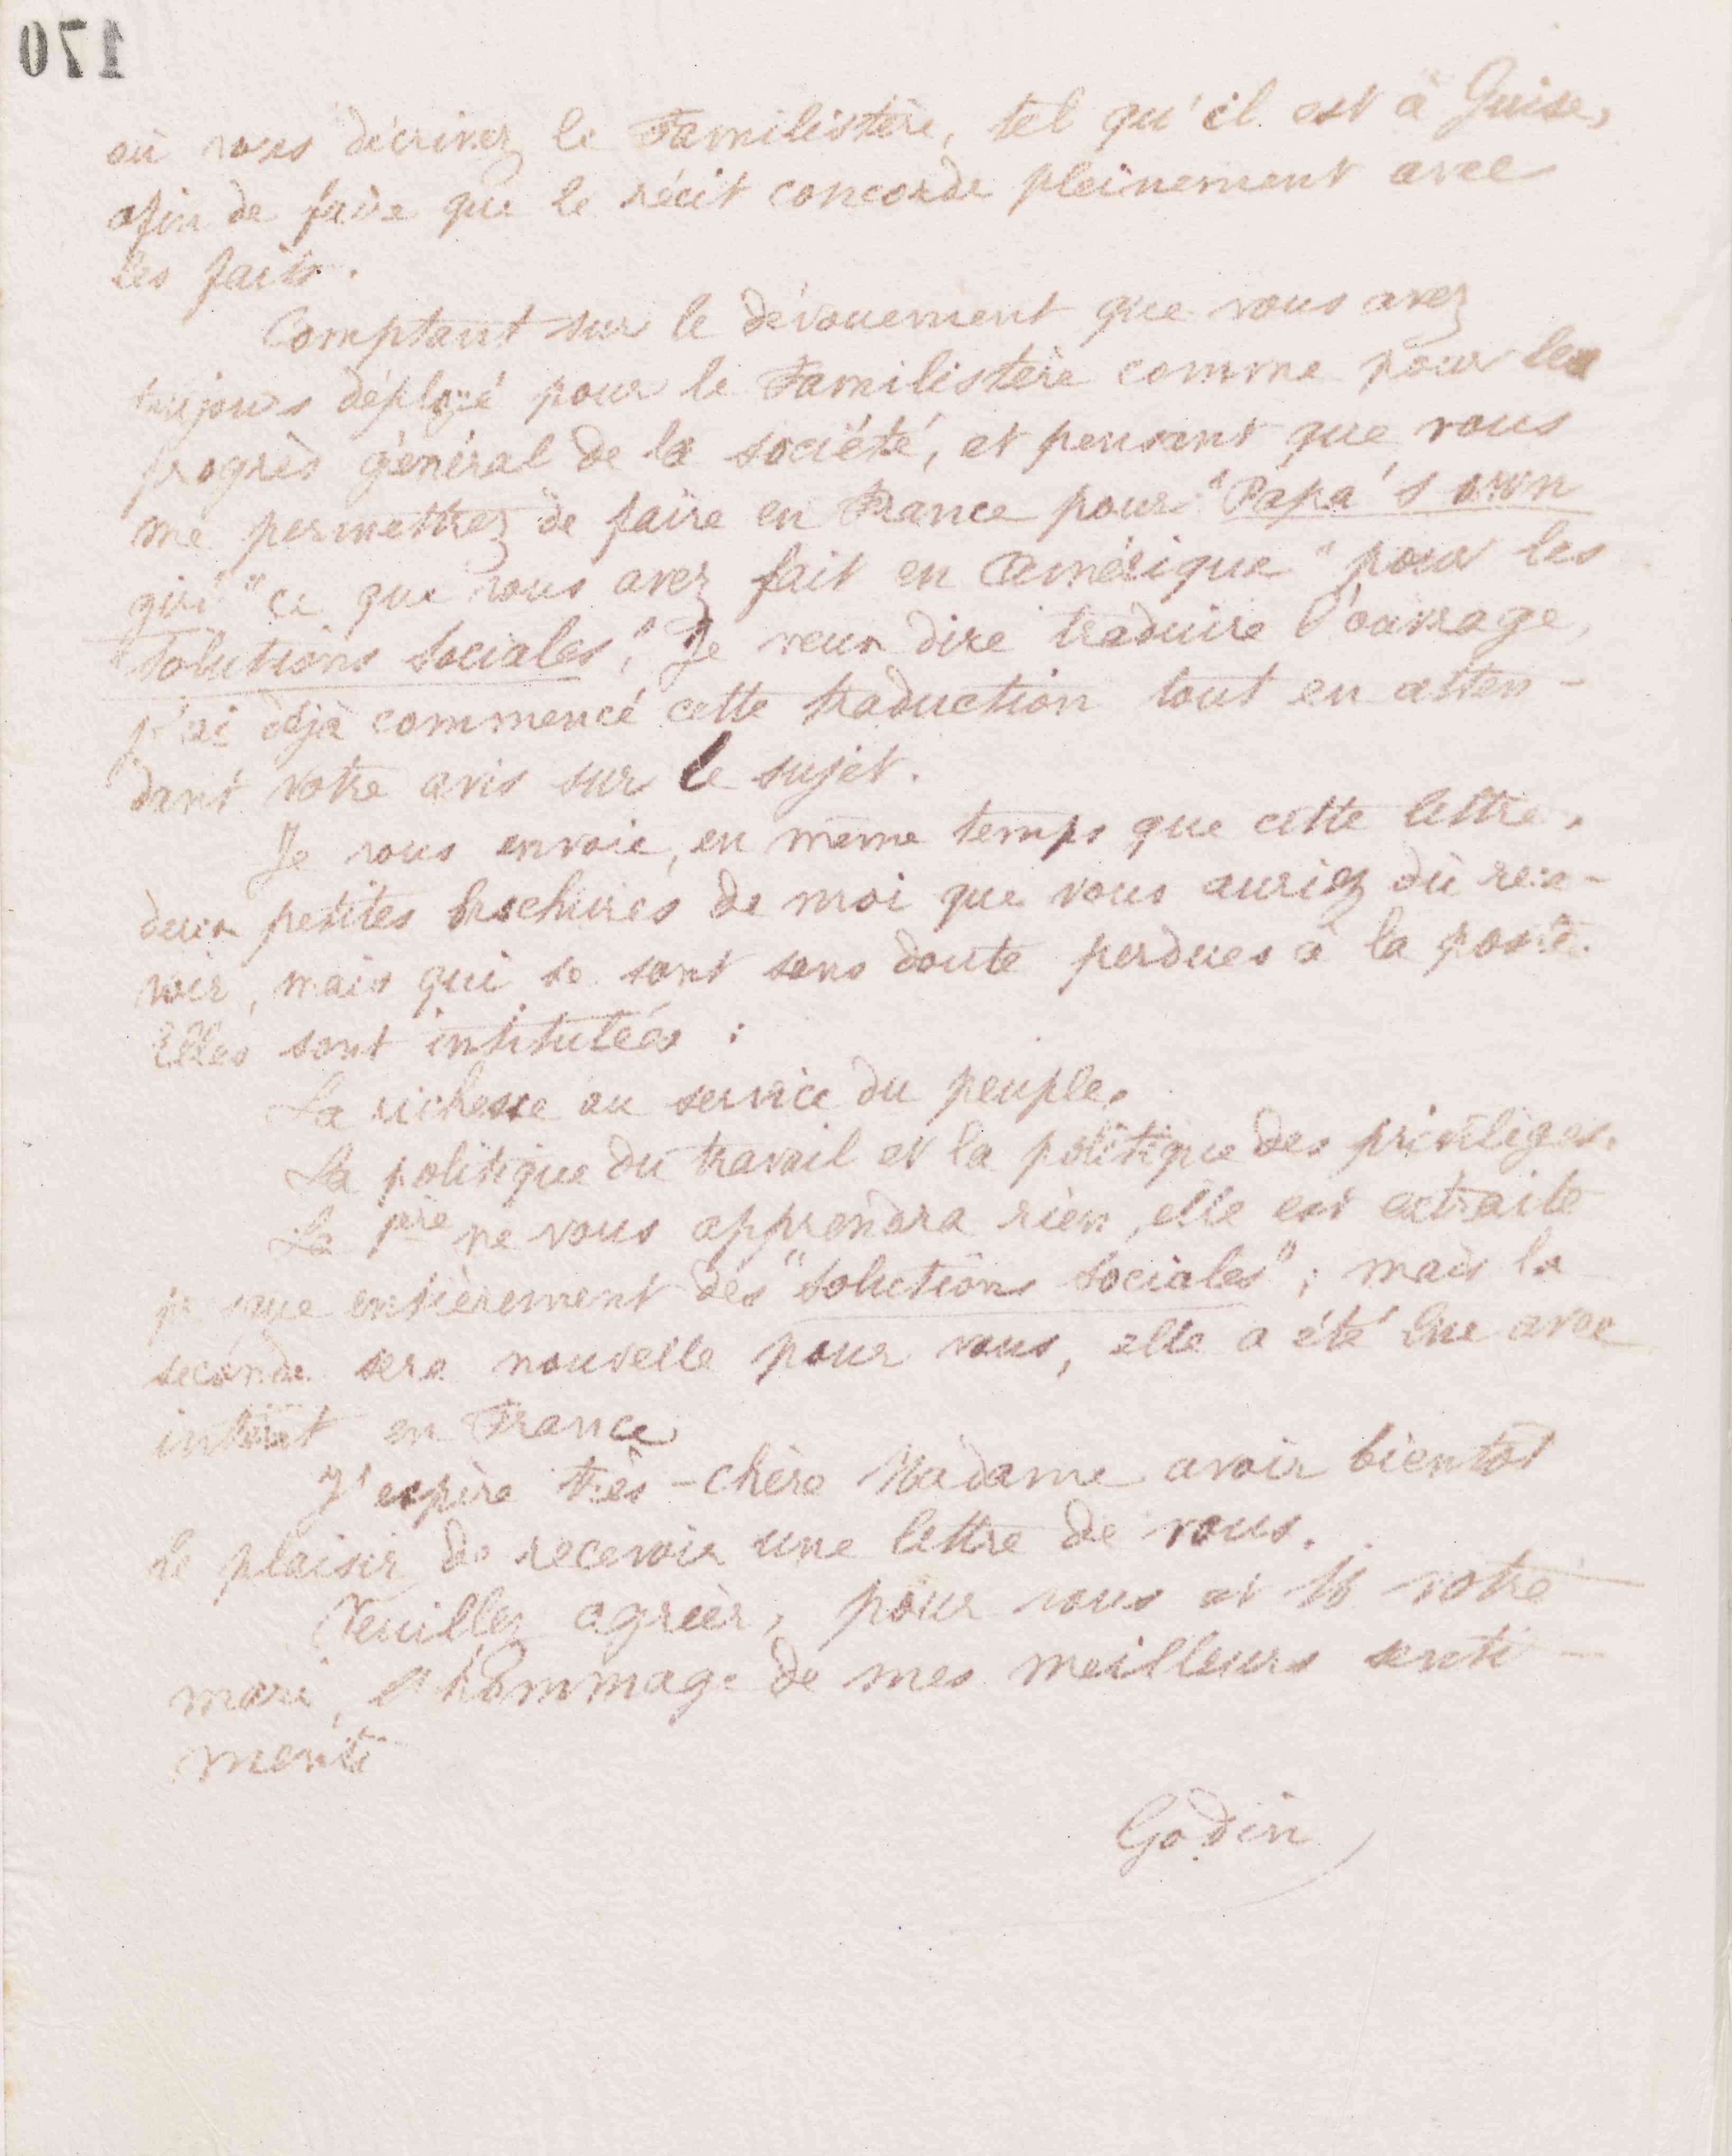 170
où vous décrivez le Familistère, tel qu'il est à Guise,
afin de faire que le récit concorde pleinement avec
les faits.
Comptant sur le dévouement que vous avez
toujours déployé pour le Familistère comme pour le
progrès général de la société, et pensant que vous
me permettrez de faire en France pour "Papa's own
girl" ce que vous avez fait en Amérique "pour les
Solutions Sociales", Je veux dire traduire l'ouvrage,
j'ai déjà commencé cette traduction tout en atten-
dant votre avis sur le sujet.
Je vous envoie, en même temps que cette lettre,
deux petites brochures de moi que vous auriez dû rece-
voir, mais qui se sont sans doute perdues à la poste.
Elles sont intitulées :
La richesse au service du peuple.
La politique du travail et la politique des privilèges.
La 1ère ne vous apprendra rien, elle est extraite
presque entièrement des "Solutions Sociales"; mais la
seconde sera nouvelle pour vous, elle a été lue avec
intérêt en France.
J'espère très-chère Madame avoir bientôt
le plaisir de recevoir une lettre de vous.
Veuillez agréer, pour vous et M votre
mari, l'hommage de mes meilleurs senti-
ments
Godin